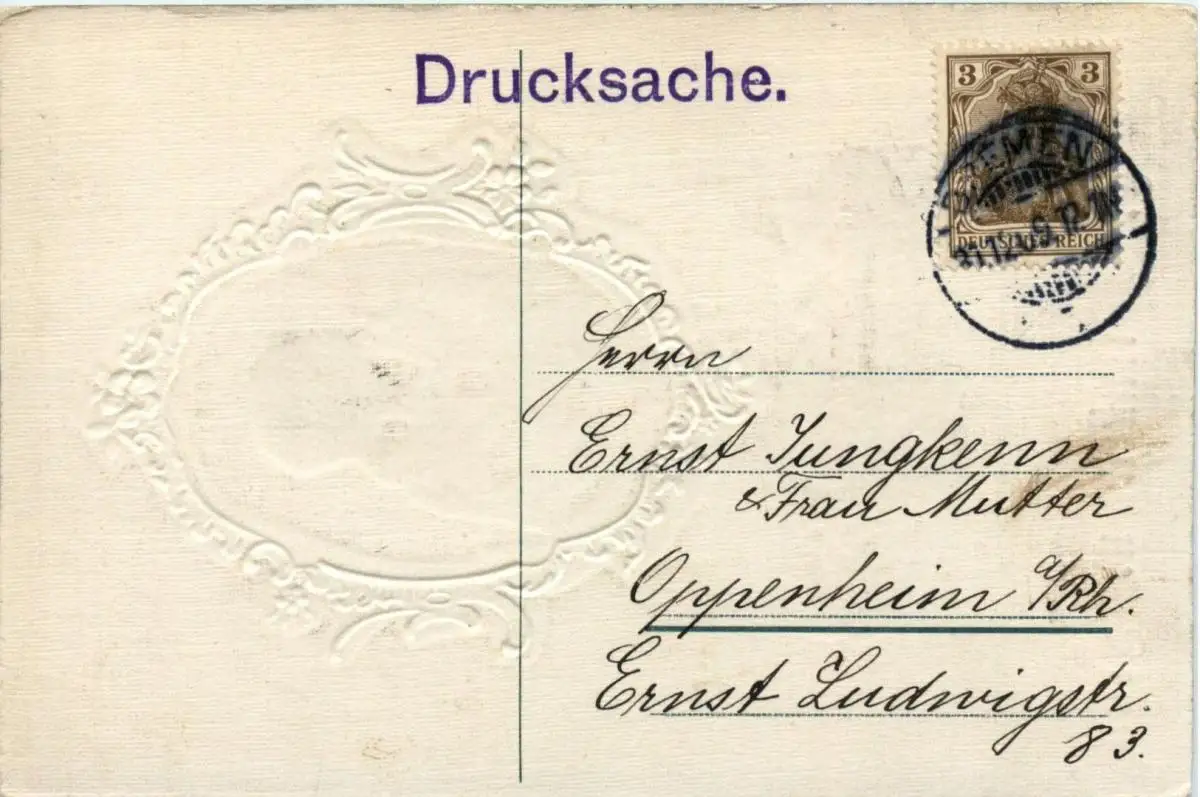 Drucksache.
3 3
DEUTSCHES REICH
BREMEN
Herrn
Ernst Jungkenn
& Frau Mutter
Oppenheim a/Rh.
Ernst Ludwigstr.
83.